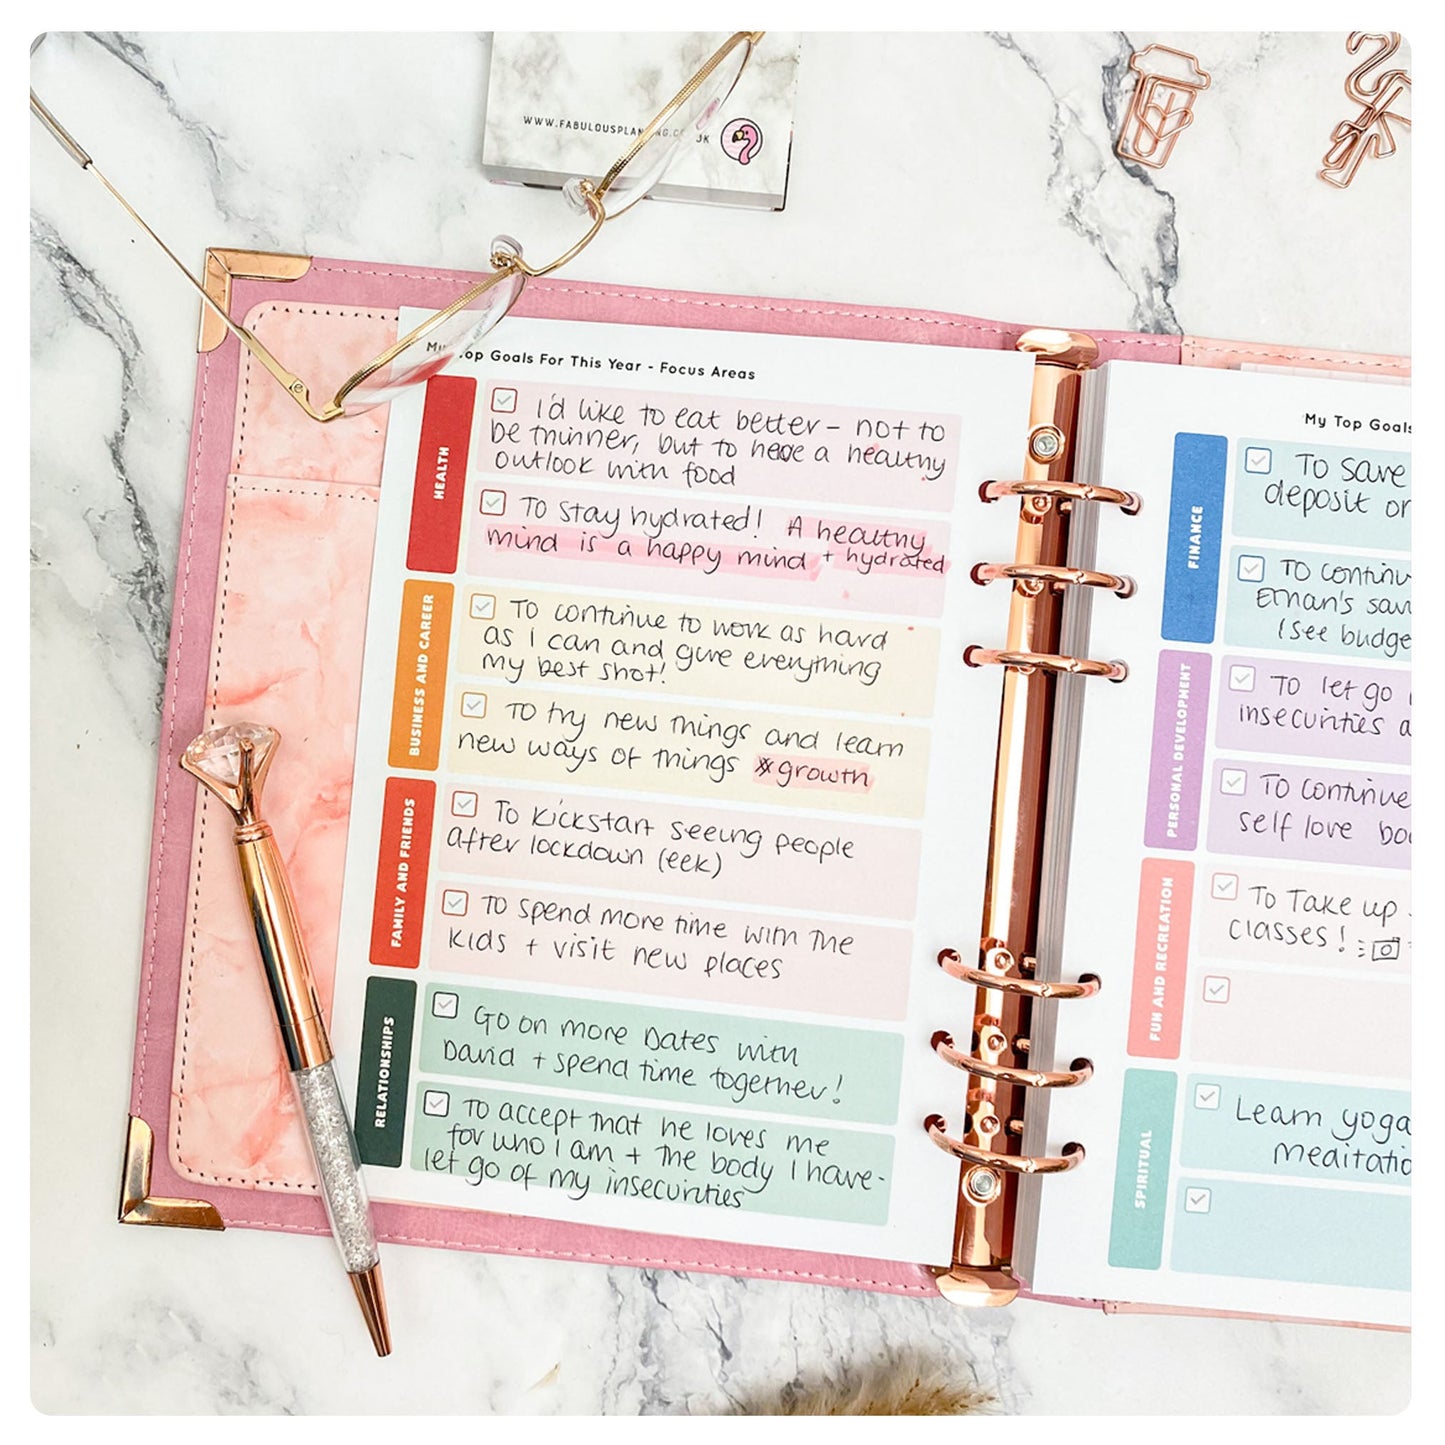 WWW.FABULOUSPLANNING.CO.UK
My Top Goals For This Year - Focus Areas
HEALTH
I'd like to eat better - not to
be thinner, but to have a healthy
outlook with food
To stay hydrated! A healthy
mind is a happy mind + hydrated
BUSINESS AND CAREER
To continue to work as hard
as I can and give everything
my best shot!
To try new things and learn
new ways of things *growth
FAMILY AND FRIENDS
To kickstart seeing people
after lockdown (eek)
To spend more time with the
kids + visit new places
RELATIONSHIPS
Go on more Dates with
David + spend time together!
To accept that he loves me
for who I am + the body I have -
let go of my insecurities
My Top Goals
FINANCE
To save
deposit or
To continu
Ethan's sav
(see budge
PERSONAL DEVELOPMENT
To let go
insecurities a
To continue
self love bo
FUN AND RECREATION
To Take up
classes!
SPIRITUAL
Learn yoga
meditatio
e